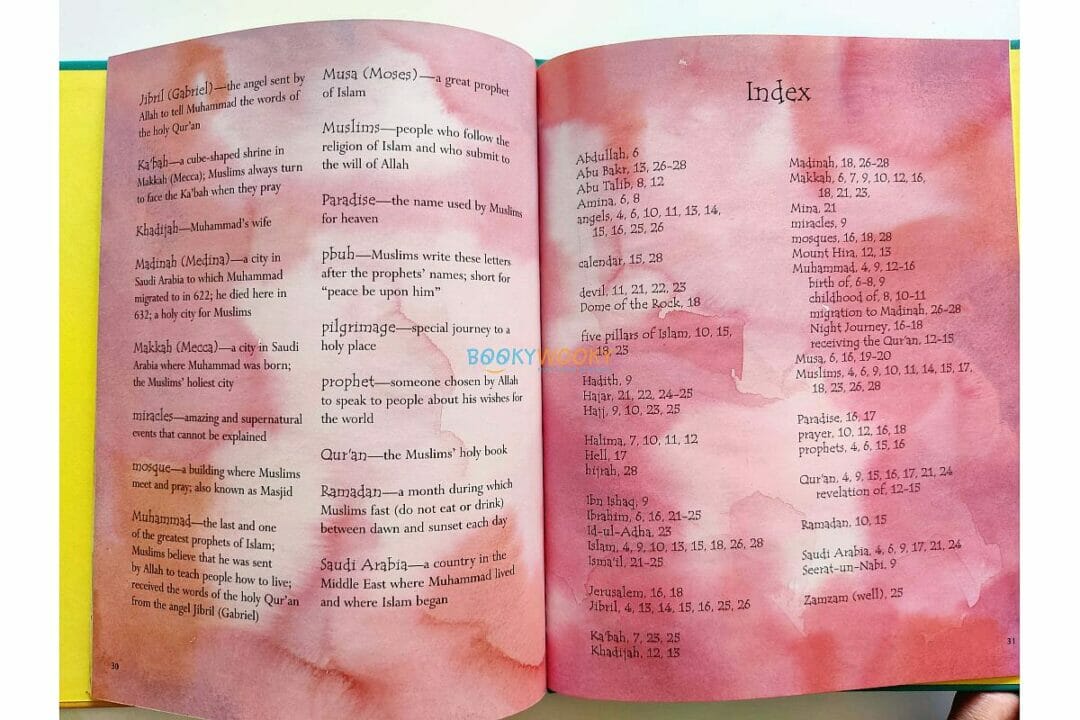 Jibril (Gabriel)—the angel sent by
Allah to tell Muhammad the words of
the holy Qur'an
Ka'bah—a cube-shaped shrine in
Makkah (Mecca); Muslims always turn
to face the Ka'bah when they pray
Khadijah—Muhammad's wife
Madinah (Medina)—a city in
Saudi Arabia to which Muhammad
migrated to in 622; he died here in
632; a holy city for Muslims
Makkah (Mecca)—a city in Saudi
Arabia where Muhammad was born;
the Muslims' holiest city
miracles—amazing and supernatural
events that cannot be explained
mosque—a building where Muslims
meet and pray; also known as Masjid
Muhammad—the last and one
of the greatest prophets of Islam;
Muslims believe that he was sent
by Allah to teach people how to live;
received the words of the holy Qur'an
from the angel Jibril (Gabriel)
30
Musa (Moses)—a great prophet
of Islam
Muslims—people who follow the
religion of Islam and who submit to
the will of Allah
Paradise—the name used by Muslims
for heaven
pbuh—Muslims write these letters
after the prophets' names; short for
"peace be upon him"
pilgrimage—special journey to a
holy place
prophet—someone chosen by Allah
to speak to people about his wishes for
the world
Qur'an—the Muslims' holy book
Ramadan—a month during which
Muslims fast (do not eat or drink)
between dawn and sunset each day
Saudi Arabia—a country in the
Middle East where Muhammad lived
and where Islam began
BOOKYWOOKY
Index
Abdullah, 6
Abu Bakr, 13, 26-28
Abu Talib, 8, 12
Amina, 6, 8
angels, 4, 6, 10, 11, 13, 14,
15, 16, 25, 26
calendar, 15, 28
devil, 11, 21, 22, 23
Dome of the Rock, 18
five pillars of Islam, 10, 15,
18, 23
Hadith, 9
Hajar, 21, 22, 24-25
Hajj, 9, 10, 23, 25
Halima, 7, 10, 11, 12
Hell, 17
hijrah, 28
Ibn Ishaq, 9
Ibrahim, 6, 16, 21-25
Id-ul-Adha, 23
Islam, 4, 9, 10, 13, 15, 18, 26, 28
Isma'il, 21-25
Jerusalem, 16, 18
Jibril, 4, 13, 14, 15, 16, 25, 26
Ka'bah, 7, 23, 25
Khadijah, 12, 13
Madinah, 18, 26-28
Makkah, 6, 7, 9, 10, 12, 16,
18, 21, 23,
Mina, 21
miracles, 9
mosques, 16, 18, 28
Mount Hira, 12, 13
Muhammad, 4, 9, 12-16
birth of, 6-8, 9
childhood of, 8, 10-11
migration to Madinah, 26-28
Night Journey, 16-18
receiving the Qur'an, 12-15
Musa, 6, 16, 19-20
Muslims, 4, 6, 9, 10, 11, 14, 15, 17,
18, 23, 26, 28
Paradise, 16, 17
prayer, 10, 12, 16, 18
prophets, 4, 6, 15, 16
Qur'an, 4, 9, 15, 16, 17, 21, 24
revelation of, 12-15
Ramadan, 10, 15
Saudi Arabia, 4, 6, 9, 17, 21, 24
Seerat-un-Nabi, 9
Zamzam (well), 25
31